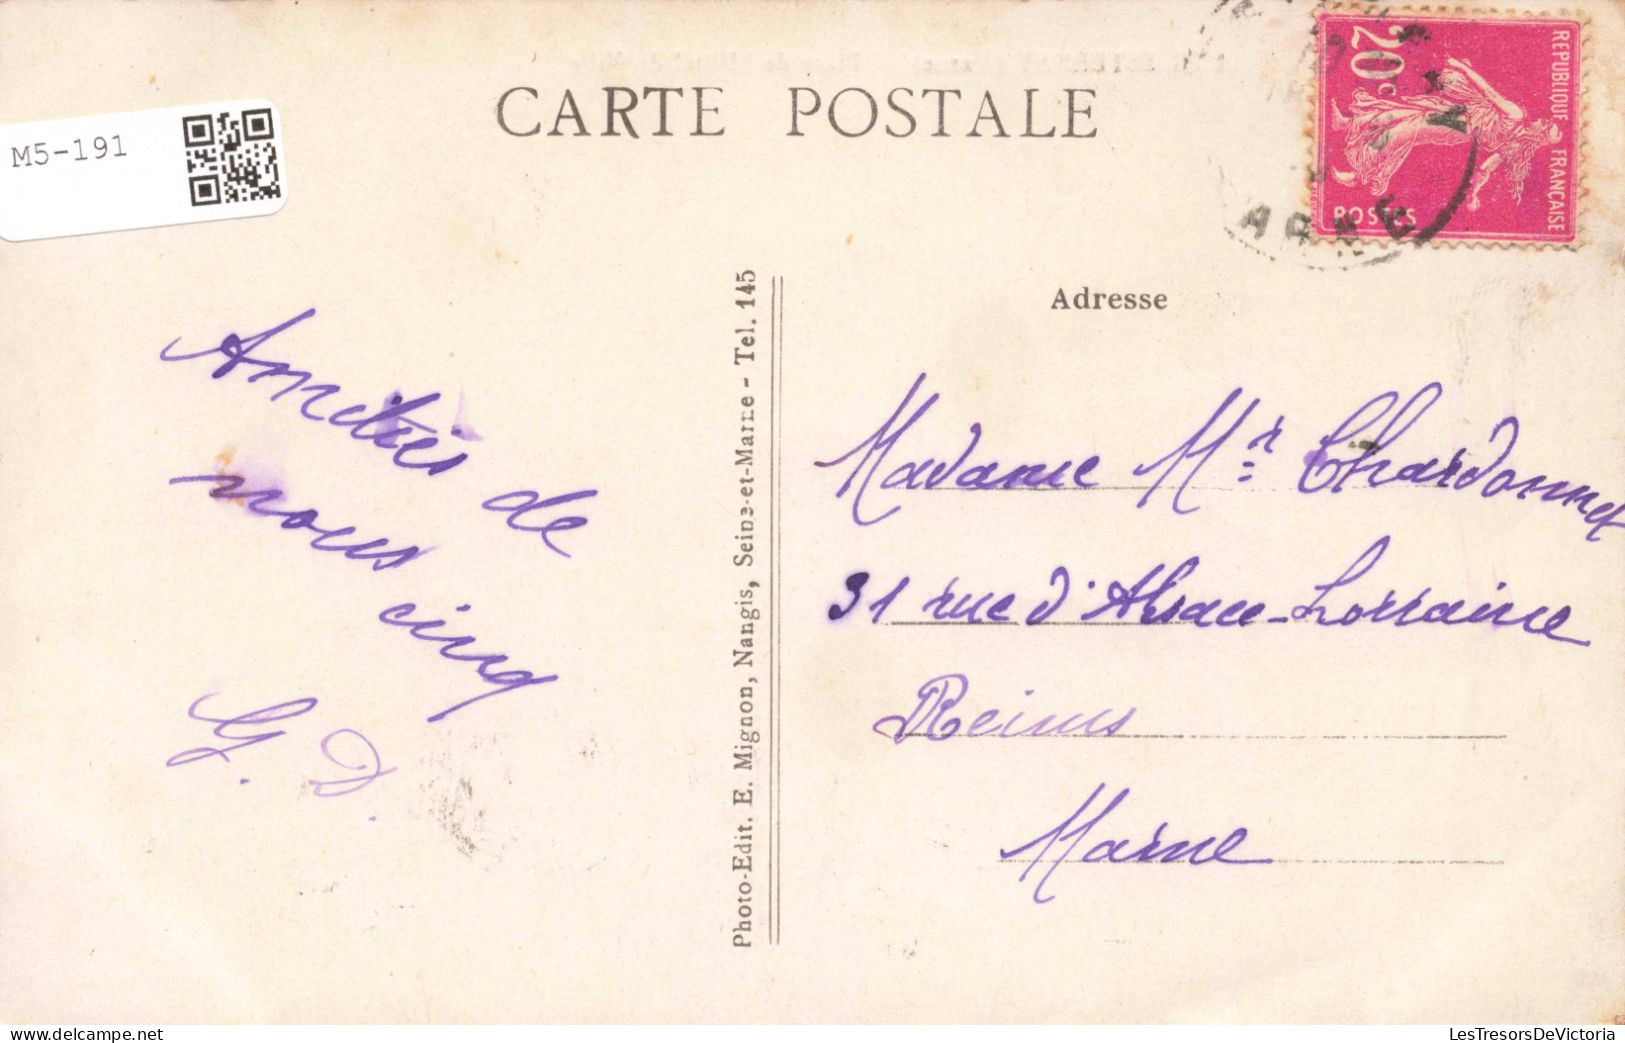 CARTE POSTALE
M5-191
REPUBLIQUE FRANÇAISE
20c
POSTES
Adresse
Amitiés de
nous cinq
G. D.
Photo-Edit. E. Mignon, Nangis, Seine-et-Marne - Tel. 145
Madame Mr Chardonnet
31 rue d'Alsace-Lorraine
Reims
Marne
LesTresorsDeVictoria